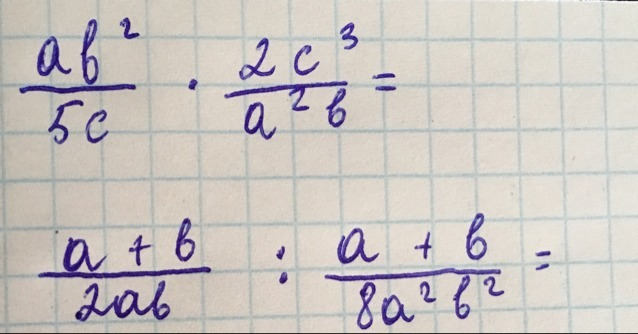 ab²/5c · 2c³/a²b =
a + b/2ab : a + b/8a²b² =